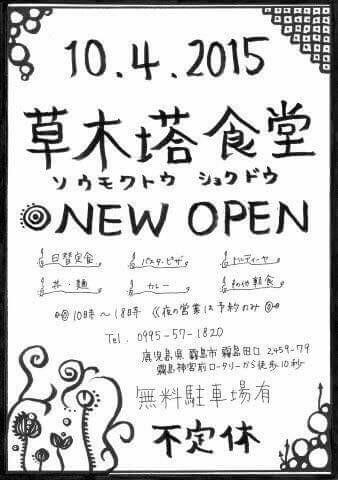 10.4.2015
草木塔食堂
ソウモクトウ ショクドウ
NEW OPEN
日替定食 パスタ・ピザ トルティーヤ
丼・麺 カレー その他軽食
10時〜18時 《夜の営業は予約のみ
Tel. 0995-57-1820
鹿児島県 霧島市 霧島田口 2459-79
霧島神宮前ロータリーから徒歩10秒
無料駐車場有
不定休